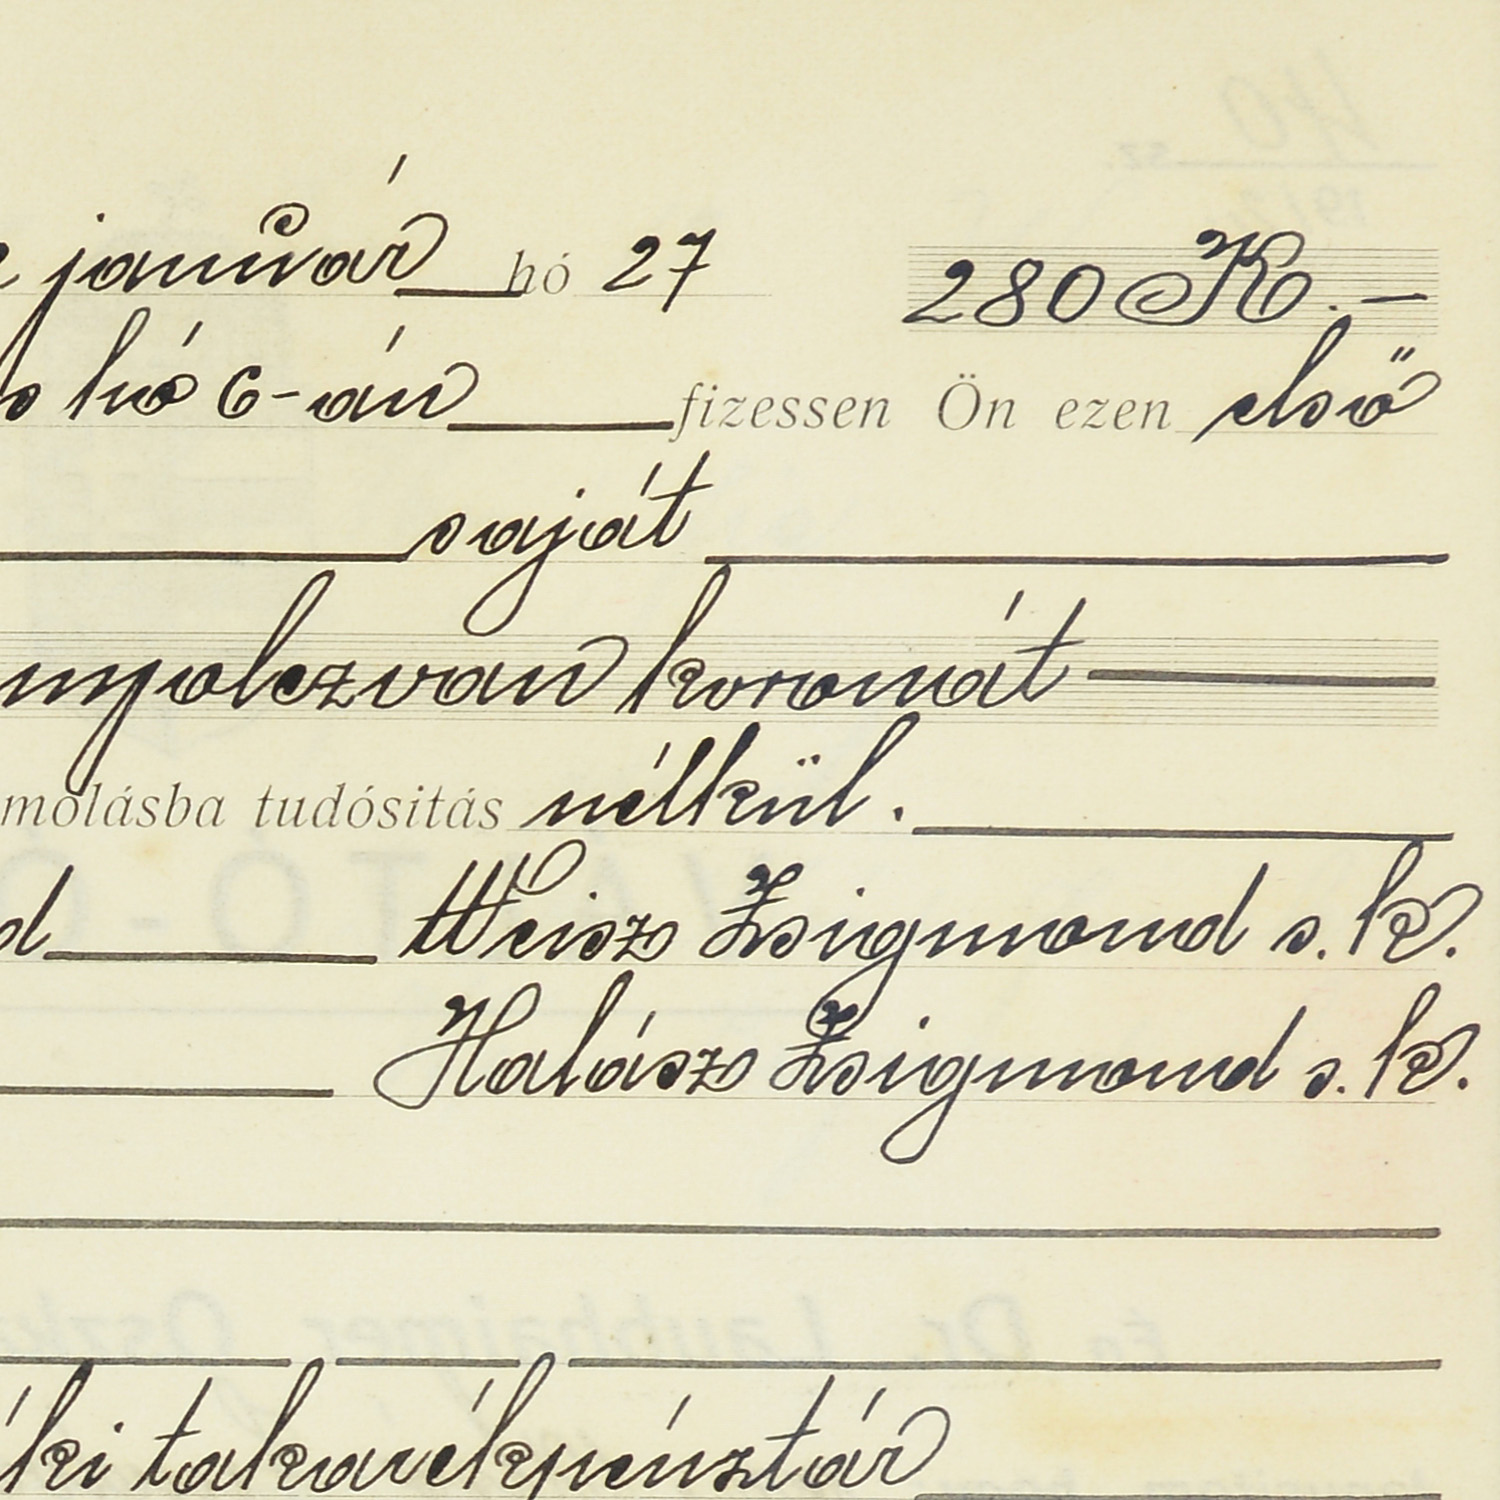 január hó 27 280 K.—
hó 6-án fizessen Ön ezen első
saját
nyolczvan koronát
molásba tudósitás nélkül.
d Weisz Zsigmond s. k.
Halász Zsigmond s. k.
ki takarékpénztár